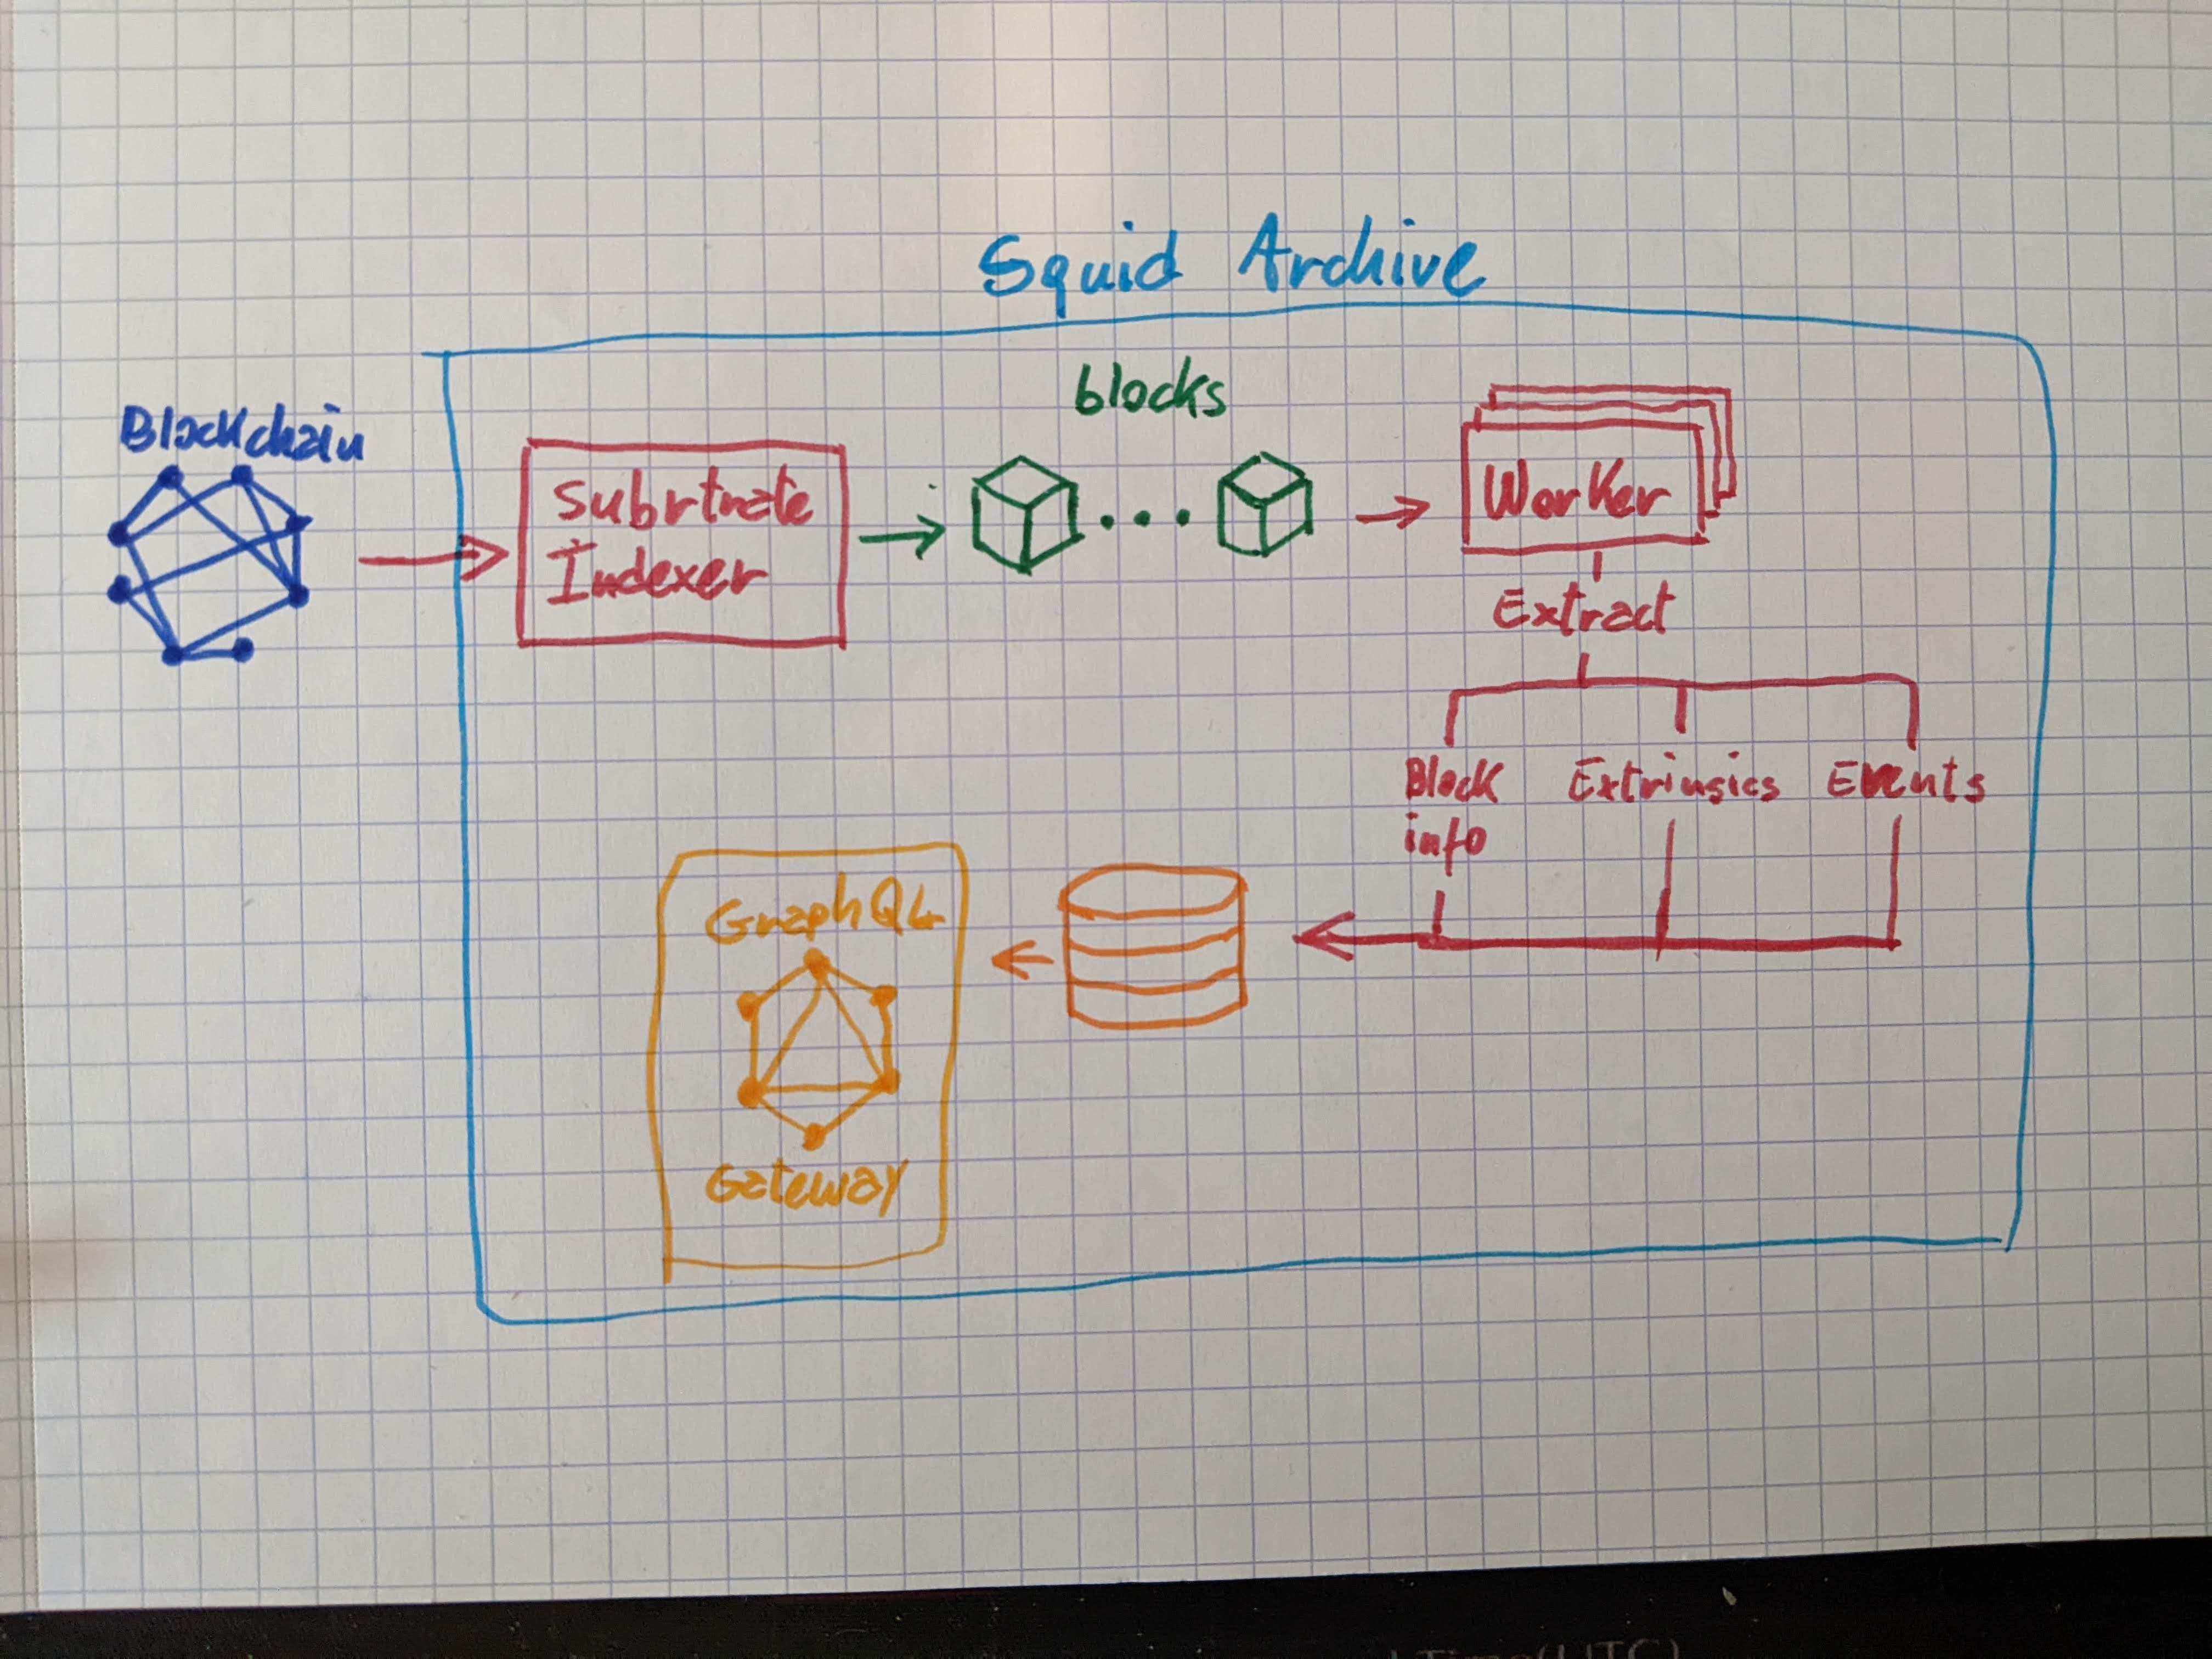 Squid Archive
Blockchain
blocks
Subrtrate
Indexer
Worker
Extract
Block
info
Extrinsics
Events
GraphQL
Gateway